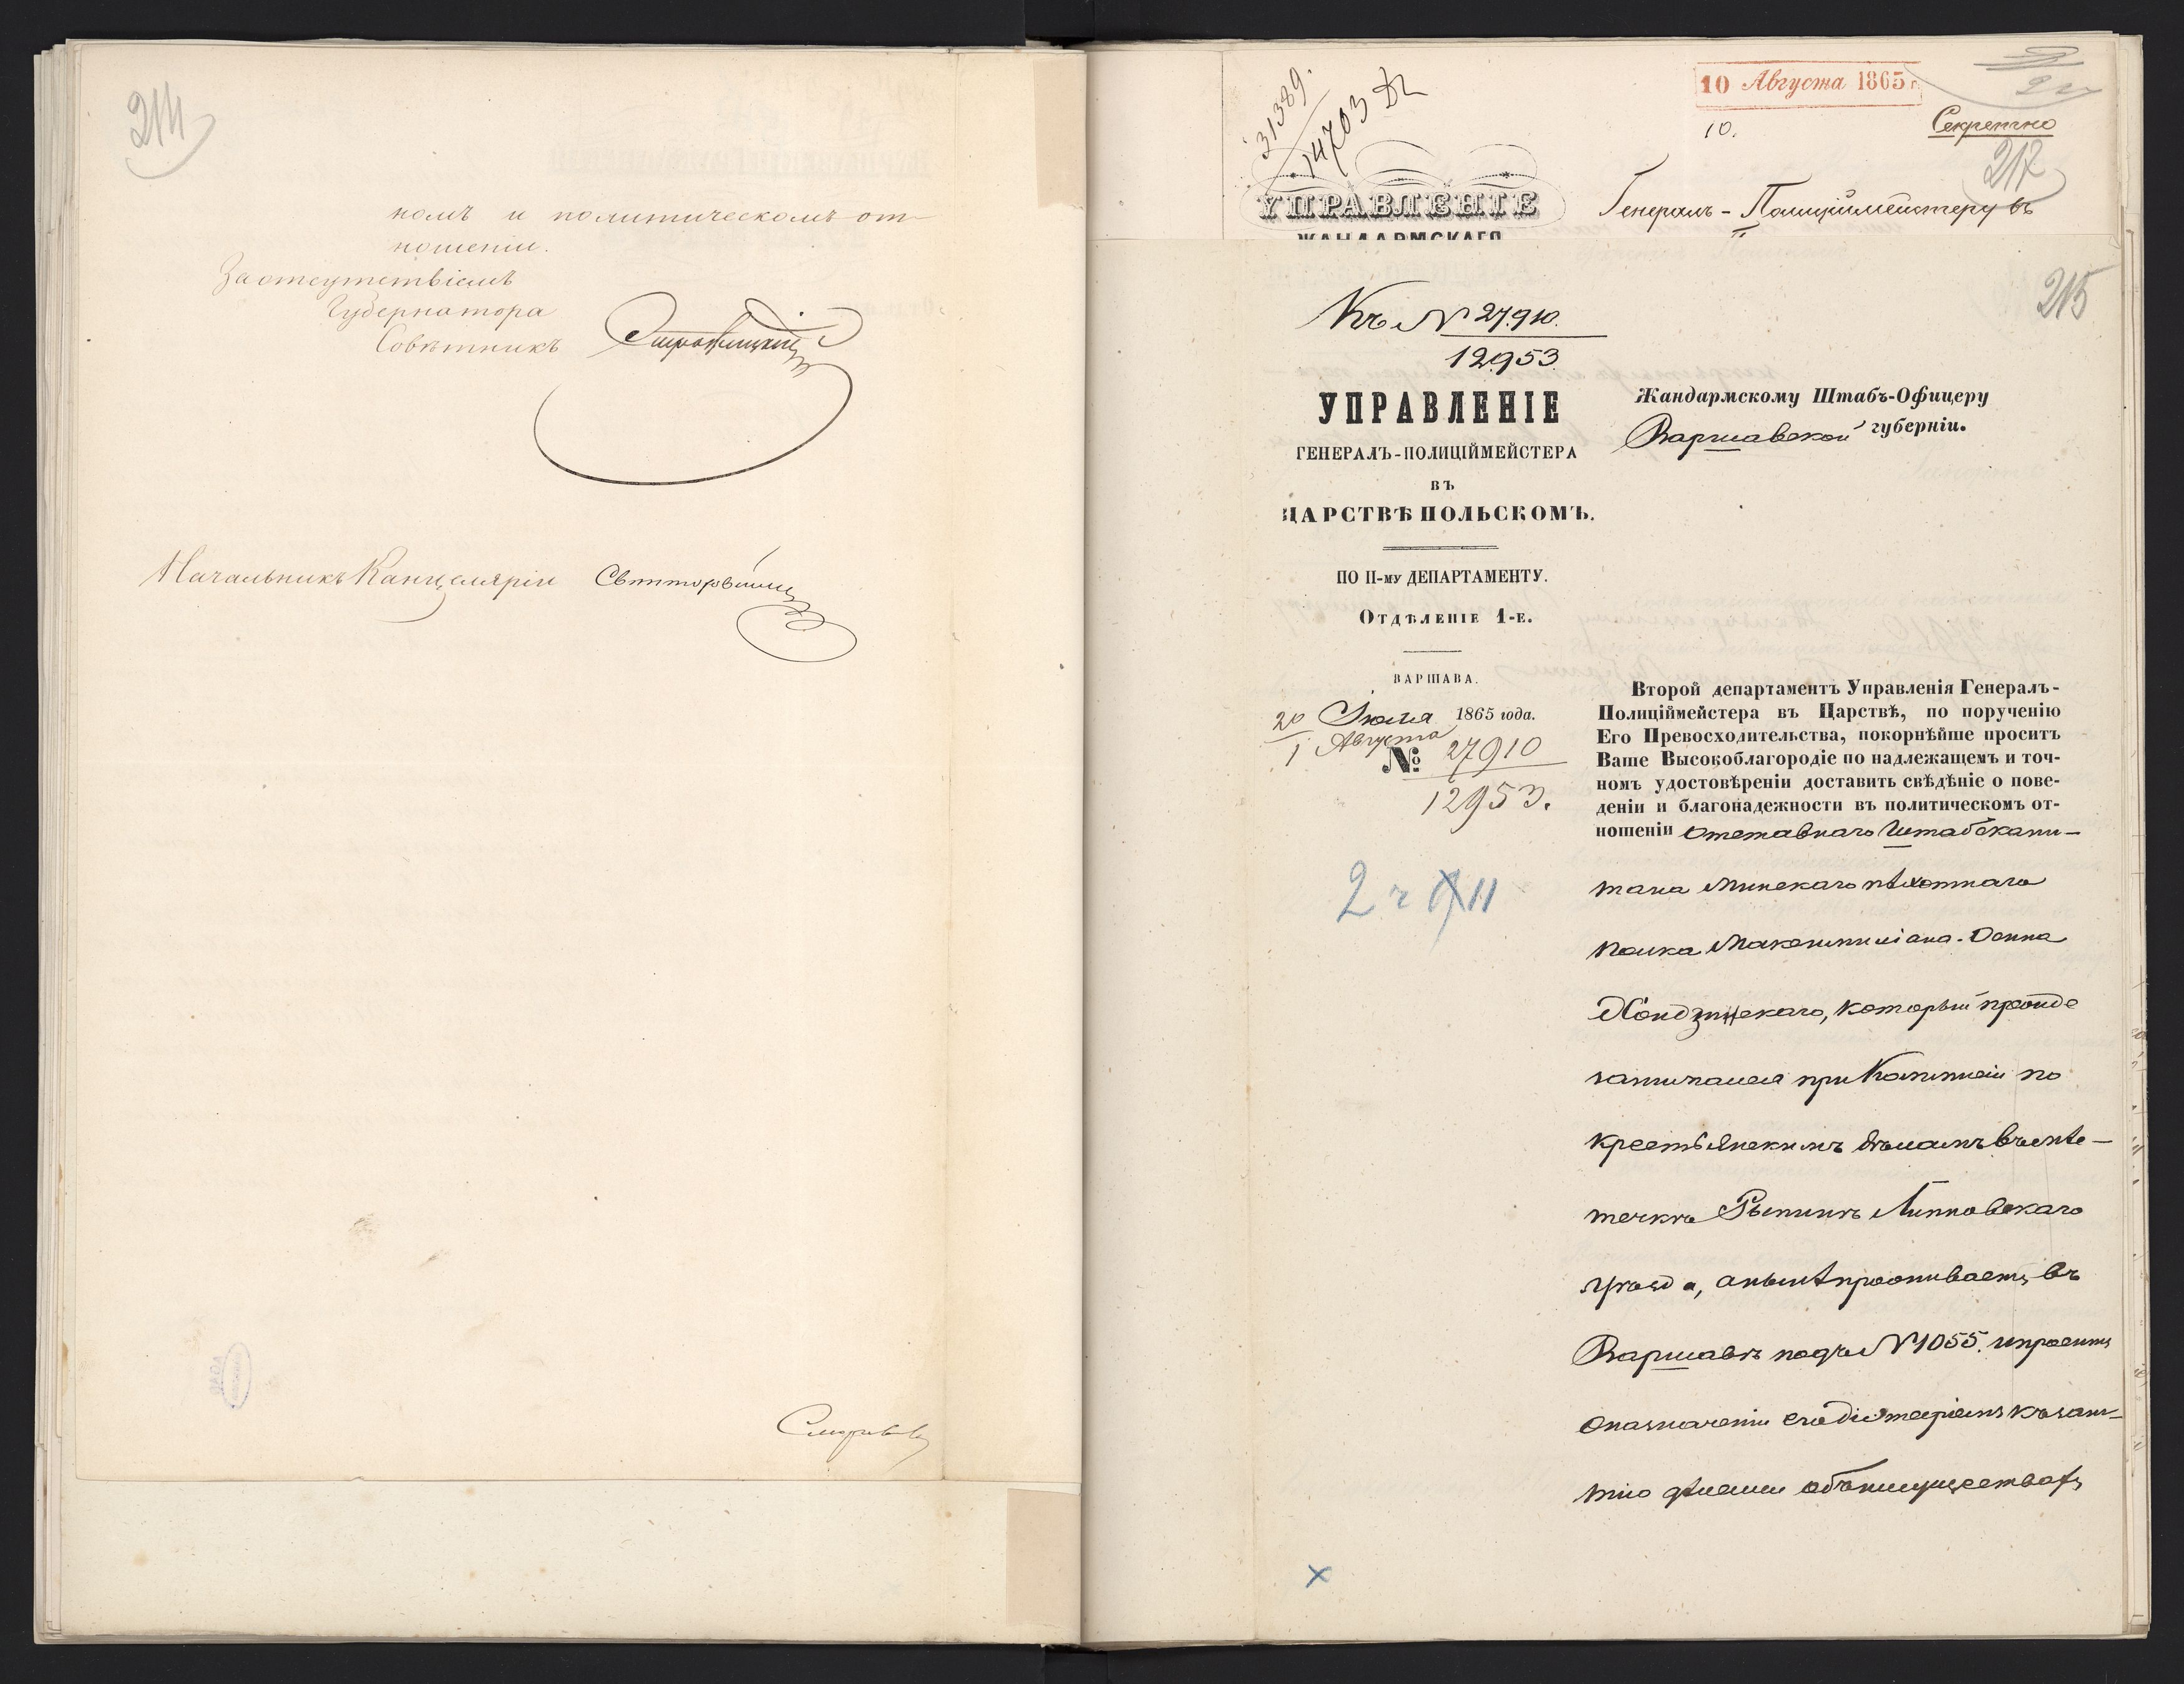 214
номъ и политическомъ от-
ношеніи.
За отсутствіемъ
Губернатора
Совѣтникъ
Начальникъ Канцеляріи
31389.
14703
10 Августа 1865 г.
10.
Секретно
217
УПРАВЛЕНІЕ
ЖАНДАРМСКАГО
Генералъ-Полиціймейстеру въ
215
Къ № 27910.
12953.
УПРАВЛЕНІЕ
ГЕНЕРАЛЪ-ПОЛИЦІЙМЕЙСТЕРА
ВЪ
ЦАРСТВѢ ПОЛЬСКОМЪ.
ПО II-му ДЕПАРТАМЕНТУ.
Отдѣленіе 1-е.
ВАРШАВА.
20 Іюля 1865 года.
1 Августа
№ 27910
12953.
2 ч 11
Жандармскому Штабъ-Офицеру
Варшавской губерніи.
Второй департаментъ Управленія Генералъ-
Полиціймейстера въ Царствѣ, по порученію
Его Превосходительства, покорнѣйше проситъ
Ваше Высокоблагородіе по надлежащемъ и точ-
номъ удостовѣреніи доставить свѣдѣніе о пове-
деніи и благонадежности въ политическомъ от-
ношеніи отставнаго Штабскапи-
тана Минскаго пѣхотнаго
полка Максимиліана-Осипа
Хондзинскаго, который прежде
занимался при Коммисіи по
крестьянскимъ дѣламъ въ мѣс-
течкѣ Рыпинѣ Липновскаго
уѣзда, а нынѣ проживаетъ въ
Варшавѣ подъ № 1055. и проситъ
о назначеніи его діетаріемъ къ заня-
тію дѣлами объ имуществахъ